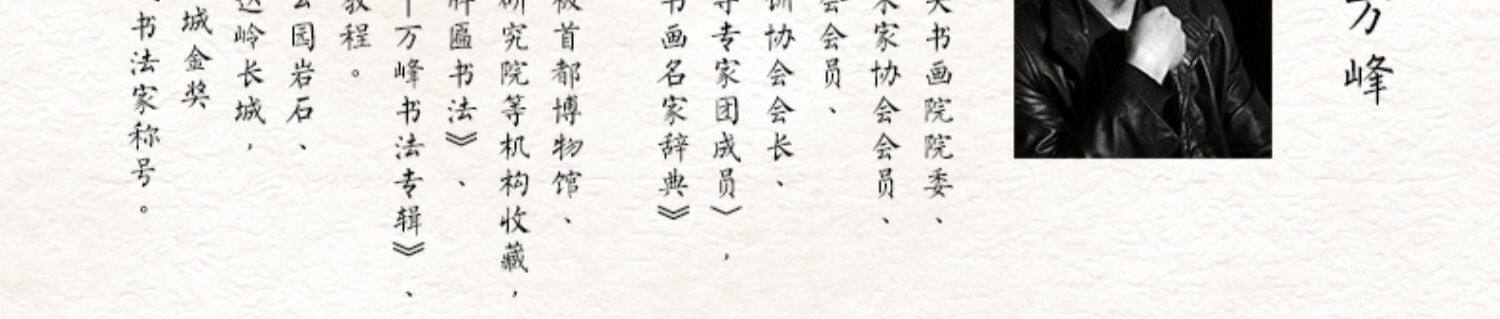 峰
书画院院委、
家协会会员、
会员、
协会会长、
专家团成员〉，
书画名家辞典》
首都博物馆、
研究院等机构收藏，
牌匾书法》、
万峰书法专辑》、
教程。
公园岩石、
达岭长城，
城金奖
书法家称号。